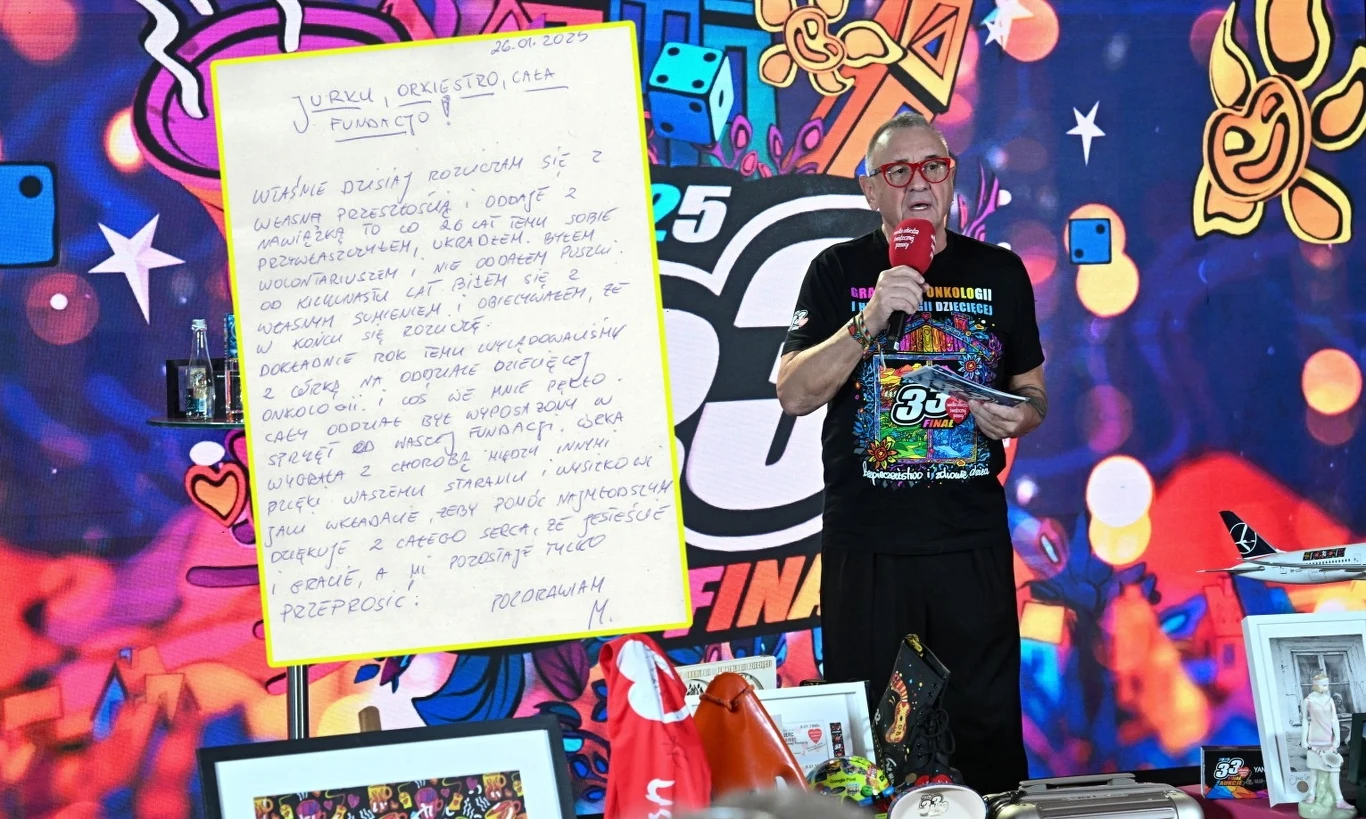 26.01.2025
JURKU, ORKIESTRO, CAŁA
FUNDACJO!
WŁAŚNIE DZISIAJ ROZLICZAM SIĘ Z
WŁASNĄ PRZESZŁOŚCIĄ I ODDAJĘ Z
NAWIĄZKĄ TO CO 26 LAT TEMU SOBIE
PRZYWŁASZCZYŁEM, UKRADŁEM. BYŁEM
WOLONTARIUSZEM I NIE ODDAŁEM PUSZKI.
OD KILKUNASTU LAT BIŁEM SIĘ Z
WŁASNYM SUMIENIEM I OBIECYWAŁEM, ŻE
W KOŃCU SIĘ ROZLICZĘ.
DOKŁADNIE ROK TEMU WYLĄDOWALIŚMY
Z CÓRKĄ NA ODDZIALE DZIECIĘCEJ
ONKOLOGII I COŚ WE MNIE PĘKŁO.
CAŁY ODDZIAŁ BYŁ WYPOSAŻONY W
SPRZĘT OD WASZEJ FUNDACJI. CÓRKA
WYGRAŁA Z CHOROBĄ MIĘDZY INNYMI
DZIĘKI WASZEMU STARANIU I WYSIŁKOWI
JAKI WKŁADACIE, ŻEBY POMÓC NAJMŁODSZYM
DZIĘKUJĘ Z CAŁEGO SERCA, ŻE JESTEŚCIE
I GRACIE, A MI POZOSTAJE TYLKO
PRZEPROSIĆ!
POZDRAWIAM
M.
25
33
FINA
ONKOLOGII
I H GII DZIECIĘCEJ
33
FINAŁ
bezpieczeństwo i zdrowie dzieci
33